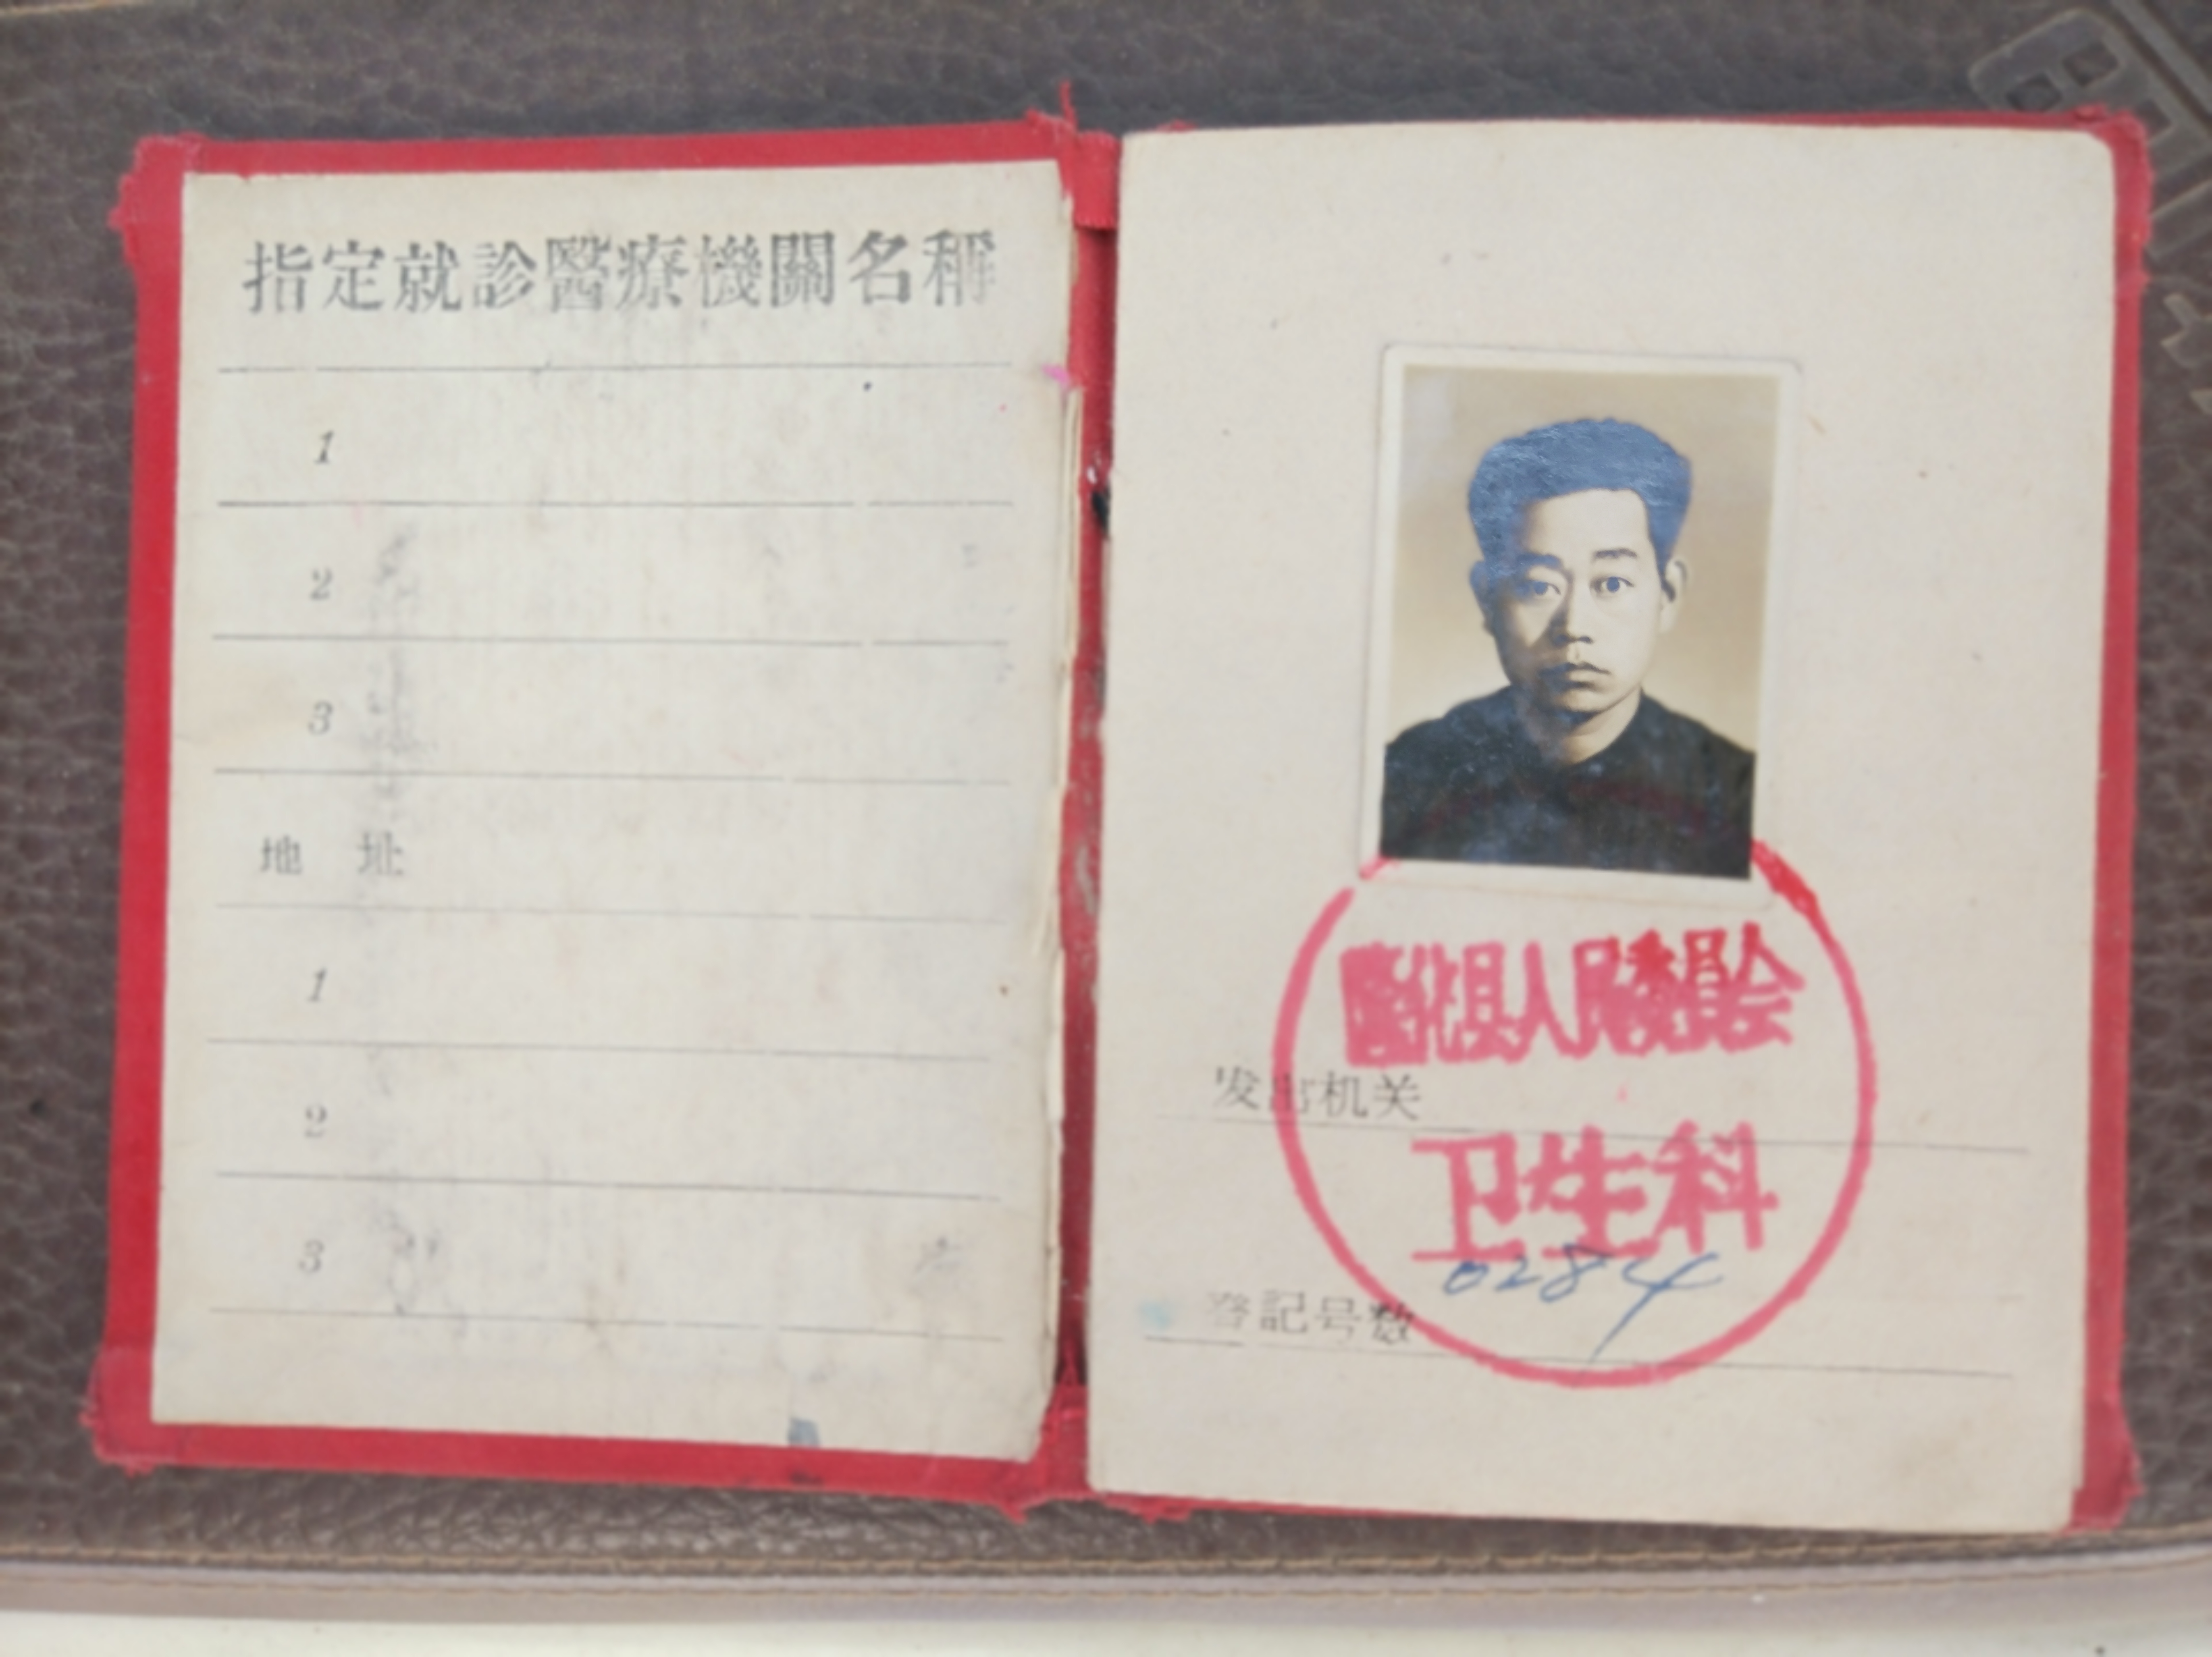 指定就診醫療機關名稱
1
2
3
地 址
1
2
3
县人民委員会
发出机关
卫生科
0284
登記号数